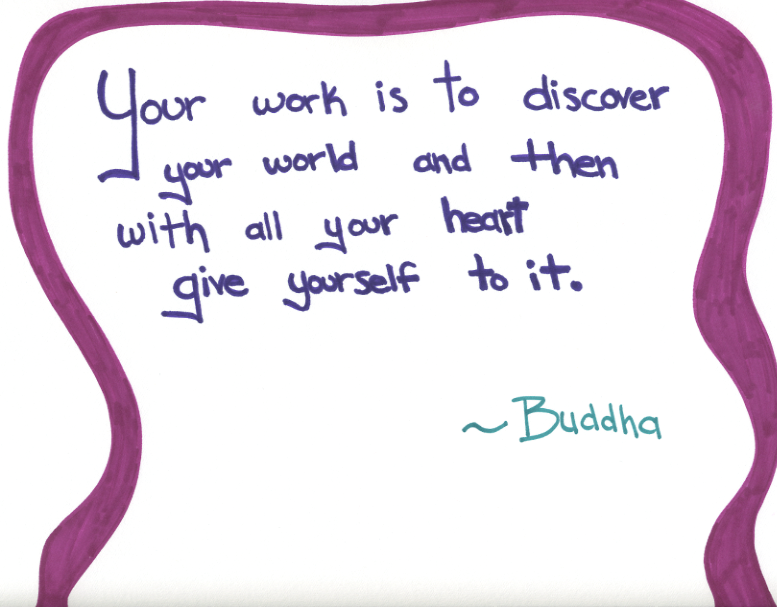 Your work is to discover
your world and then
with all your heart
give yourself to it.
~Buddha